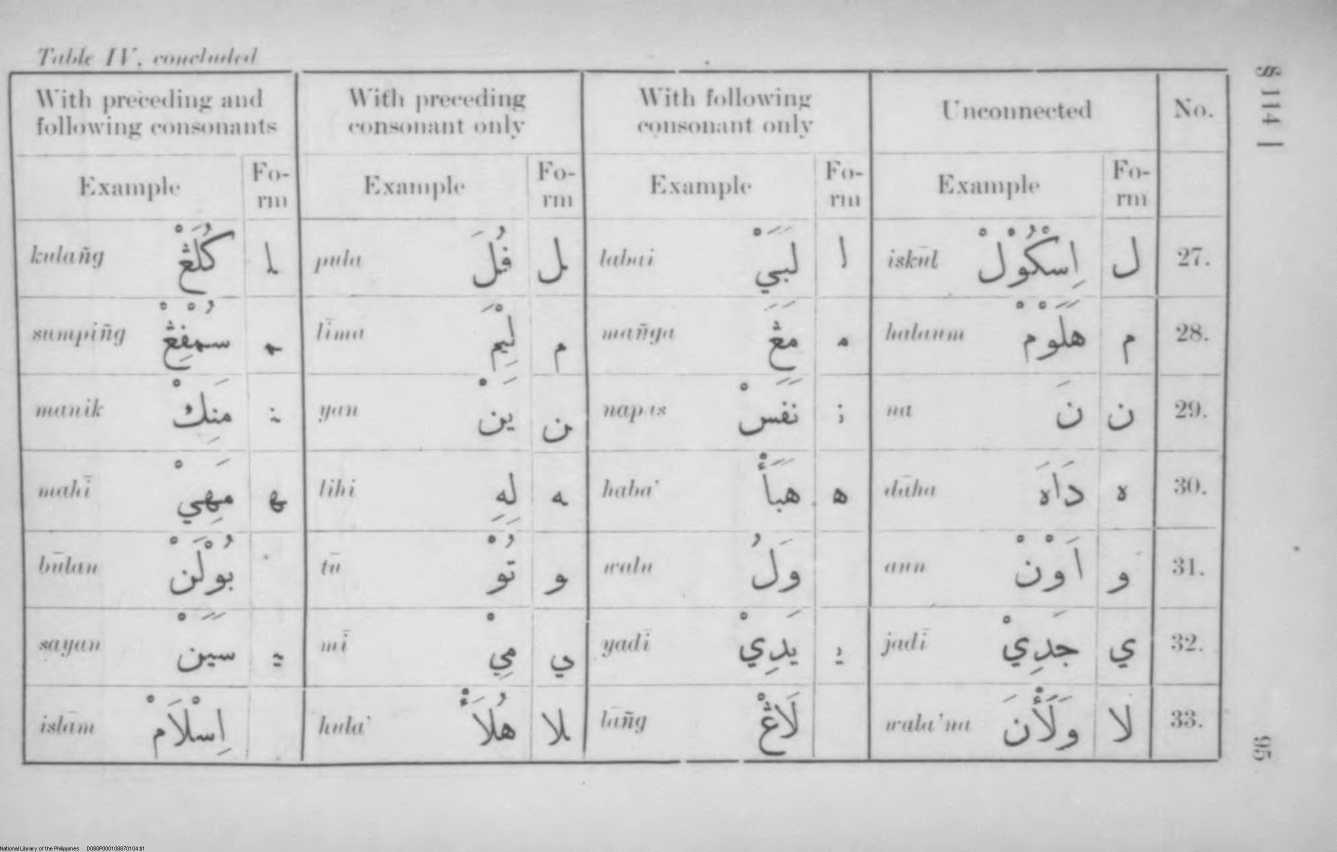 Table IV, concluded
§ 114]
With preceding and following consonants | With preceding consonant only | With following consonant only | Unconnected | No.
Example | Fo-rm | Example | Fo-rm | Example | Fo-rm | Example | Fo-rm
kulañg كُلَڠْ ـلـ | pula فُلَ ـل | labai لَبَيْ لـ | iskūl اِسْكُوْلْ ل | 27.
sumpiñg سُمْفِڠْ ـمـ | līma لِيْمَ ـم | mañga مَڠَ مـ | halaum هَلَوْمْ م | 28.
manik مَنِكْ ـنـ | yan يَنْ ـن | napas نَفَسْ نـ | na نَ ن | 29.
mahī مَهِيْ ـهـ | lihi لِهِ ـه | haba' هَبَأْ هـ | dāha دَاهَ ه | 30.
būlan بُوْلَنْ | tū تُوْ ـو | walu وَلُ | aun اَوْنْ و | 31.
sayan سَيَنْ ـيـ | mī مِيْ ـي | yadī يَدِيْ يـ | jadī جَدِيْ ي | 32.
islām اِسْلَامْ | hula' هُلَأْ ـلا | lāñg لَاڠْ | wala'na وَلَأْنَ لا | 33.
95
National Library of the Philippines